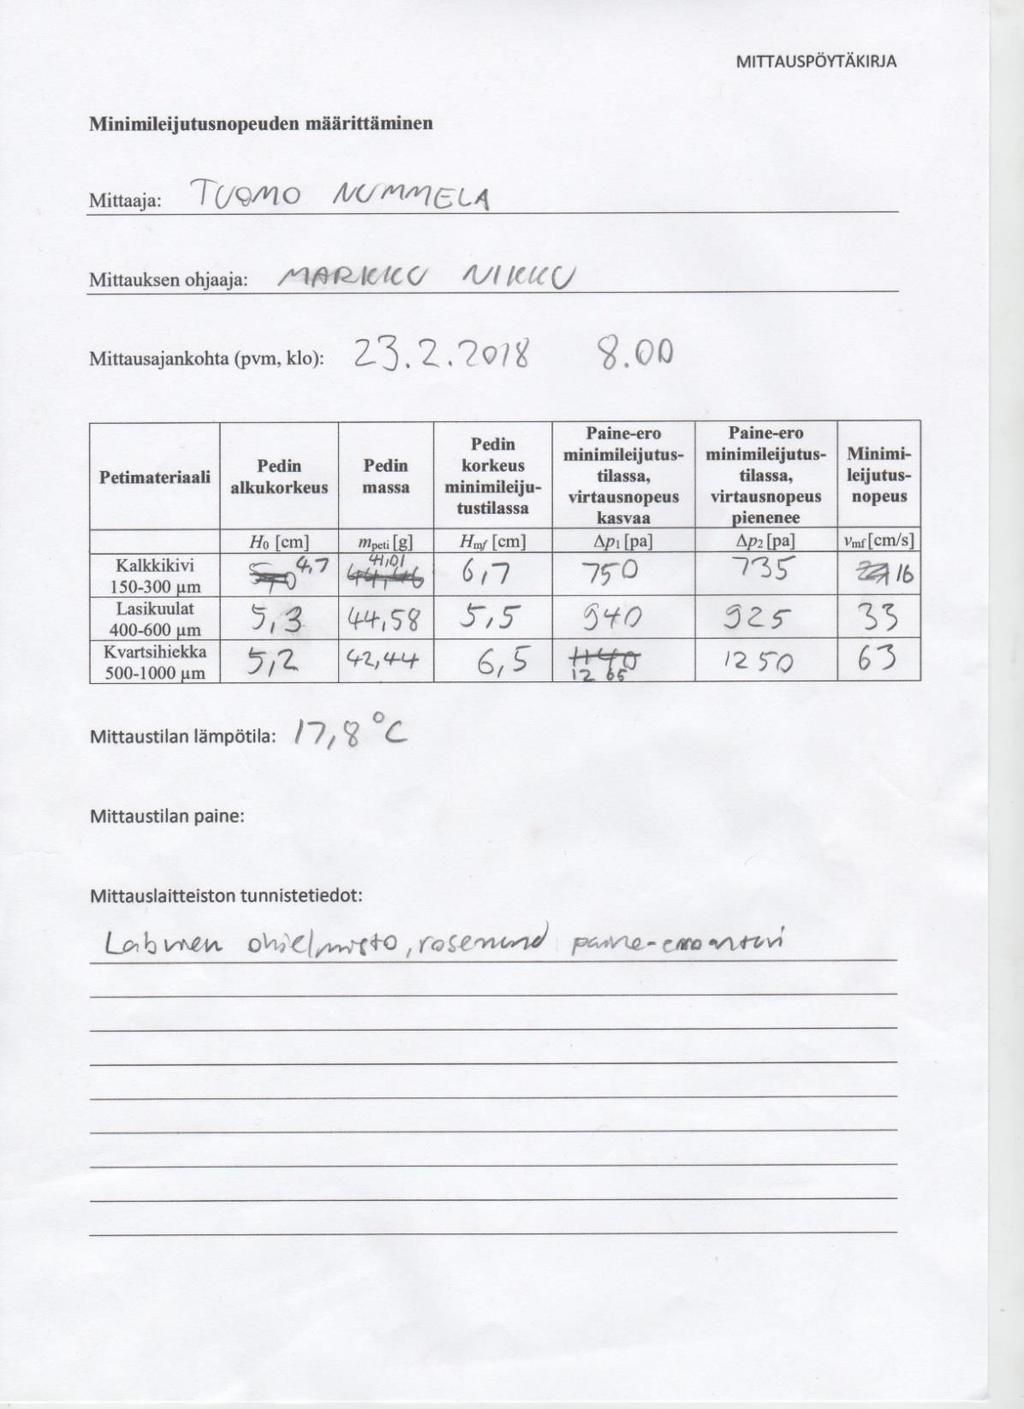 MITTAUSPÖYTÄKIRJA
Minimileijutusnopeuden määrittäminen
Mittaaja: TUOMO NUMMELA
Mittauksen ohjaaja: MARKKU NIKKU
Mittausajankohta (pvm, klo): 23.2.2018 8.00
Petimateriaali Pedin alkukorkeus Pedin massa Pedin korkeus minimileiju-tustilassa Paine-ero minimileijutus-tilassa, virtausnopeus kasvaa Paine-ero minimileijutus-tilassa, virtausnopeus pienenee Minimi-leijutus-nopeus
H₀ [cm] mpeti [g] Hmf [cm] Δp₁ [pa] Δp₂ [pa] vmf [cm/s]
Kalkkikivi 150-300 µm 4,7 41,01 6,7 750 735 16
Lasikuulat 400-600 µm 5,3 44,58 5,5 940 925 33
Kvartsihiekka 500-1000 µm 5,2 42,44 6,5 1265 1250 63
Mittaustilan lämpötila: 17,8 °C
Mittaustilan paine:
Mittauslaitteiston tunnistetiedot:
Labview ohjelmisto, rosemund paine-eroanturi